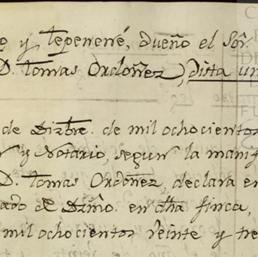 y tepenené, dueño el Sor.
D. Tomas Ordoñez, dista un
de Dizbre. de mil ochocientos
y Notario, segun la manif
D. Tomas Ordoñez, declara en
ado de Dzmo. en dha finca,
mil ochocientos veinte y tre